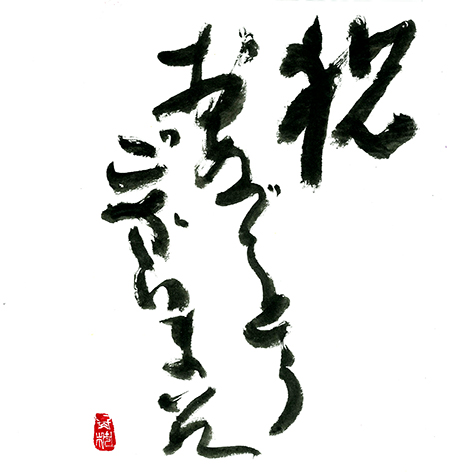 祝
おめでとう
ございます